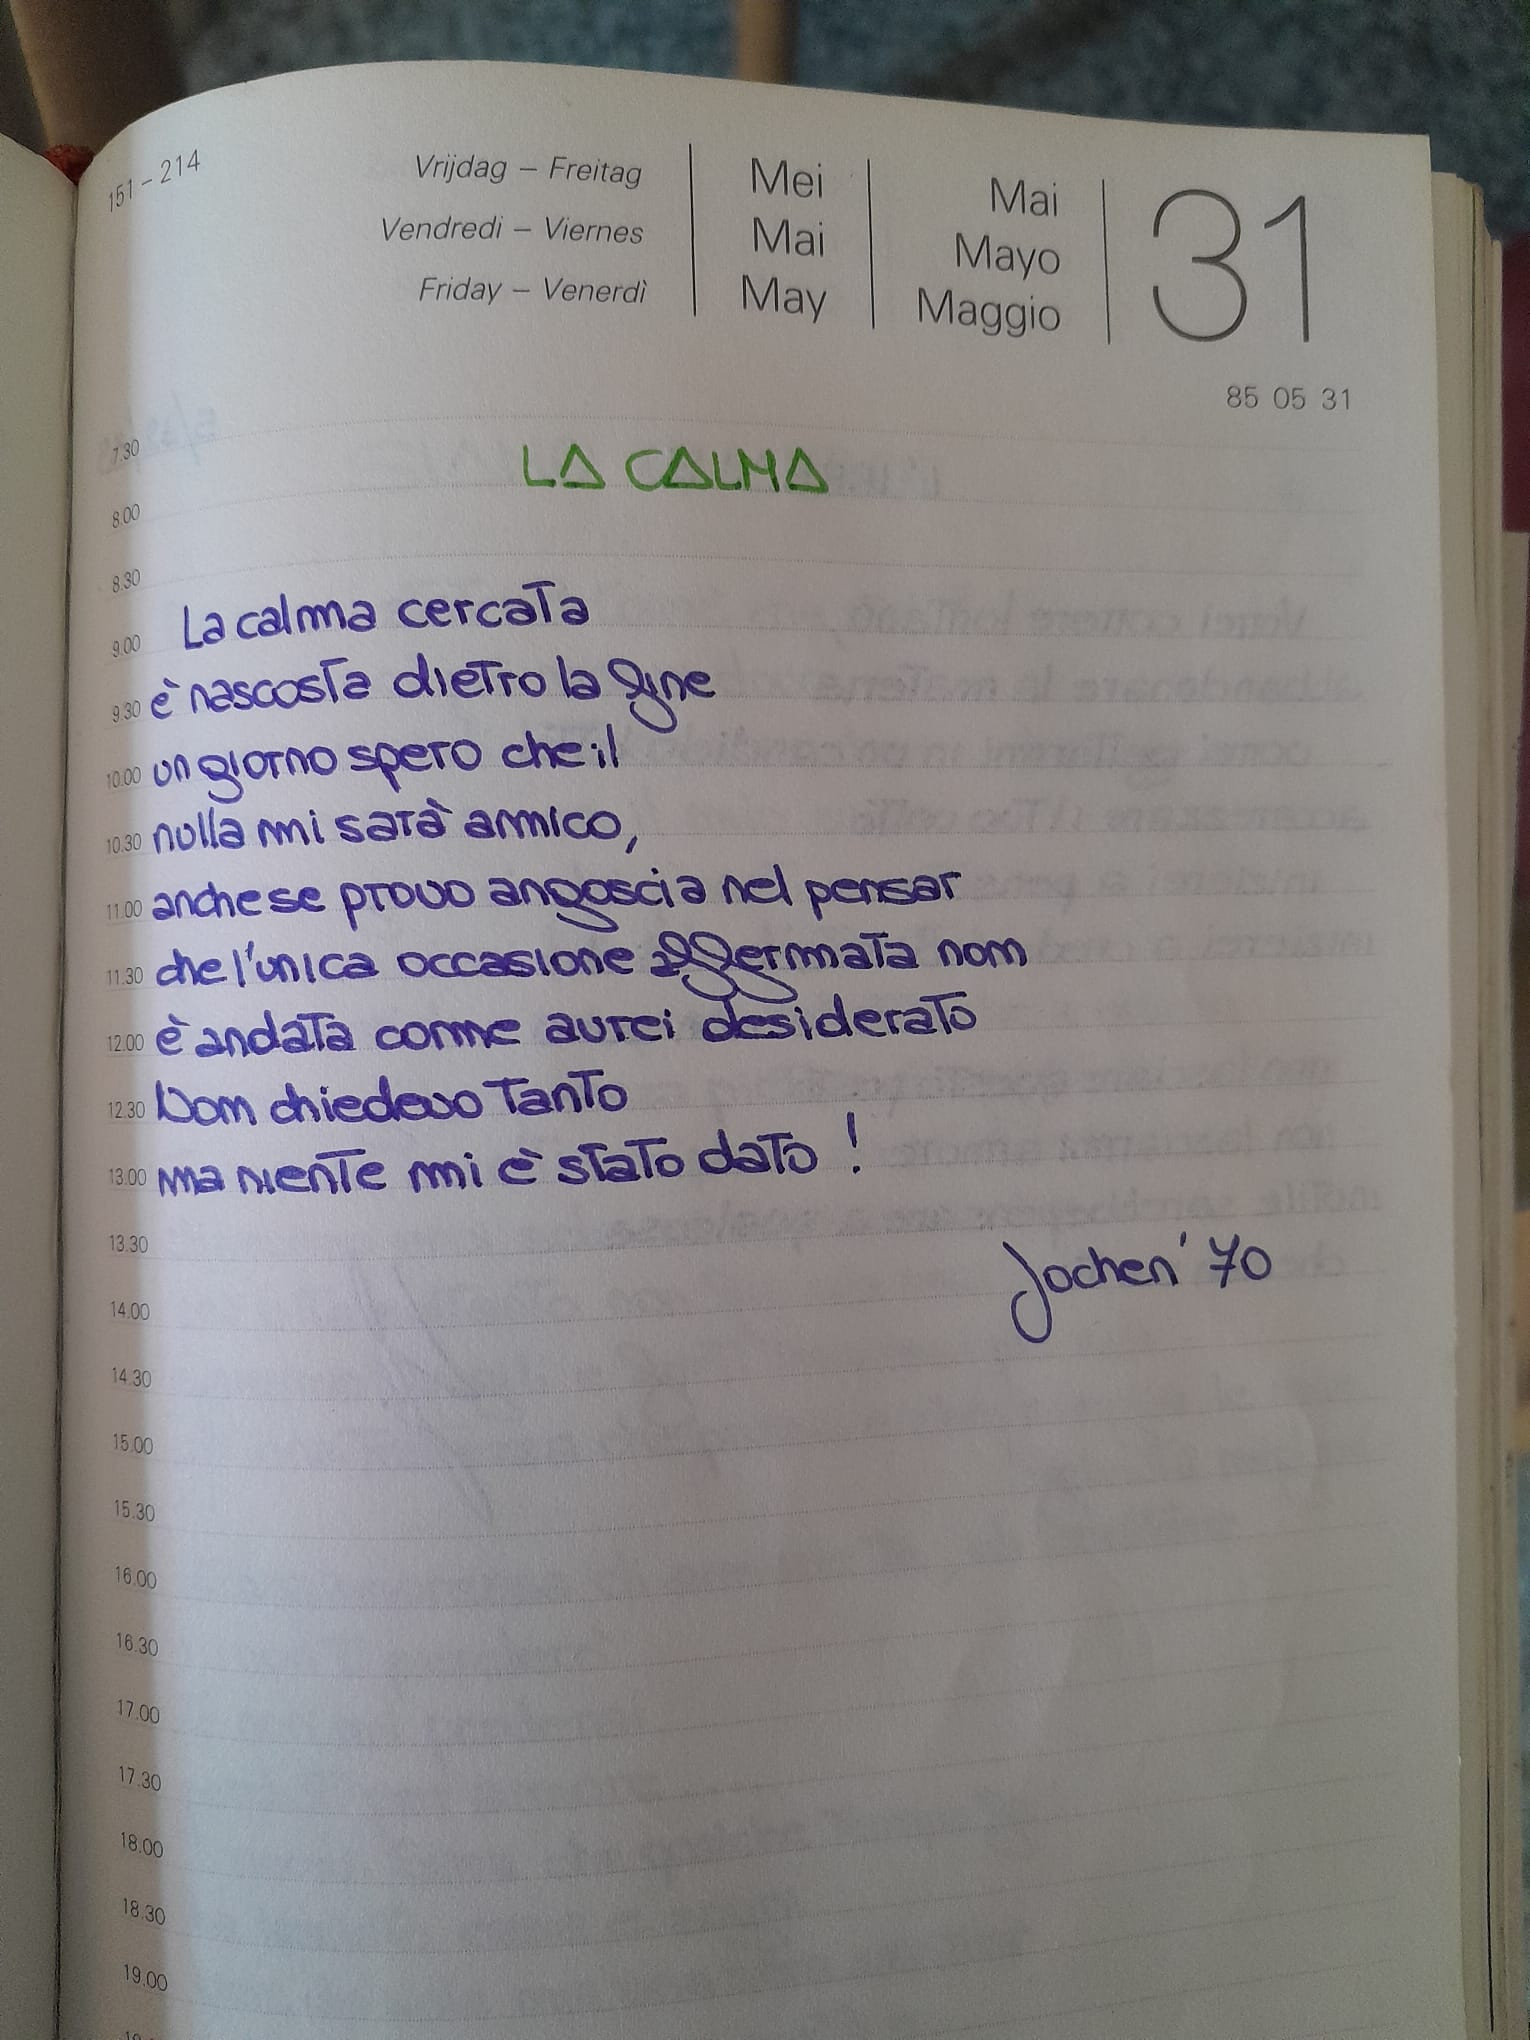 151 – 214
Vrijdag – Freitag
Vendredi – Viernes
Friday – Venerdì
Mei
Mai
May
Mai
Mayo
Maggio
31
85 05 31
LA CALMA
7.30
8.00
8.30
9.00 La calma cercata
9.30 è nascosta dietro la fine
10.00 un giorno spero che il
10.30 nulla mi sarà amico,
11.00 anche se provo angoscia nel pensar
11.30 che l'unica occasione afferrmata non
12.00 è andata come avrei desiderato
12.30 Non chiedevo tanto
13.00 ma niente mi è stato dato !
13.30
Jochen '70
14.00
14.30
15.00
15.30
16.00
16.30
17.00
17.30
18.00
18.30
19.00